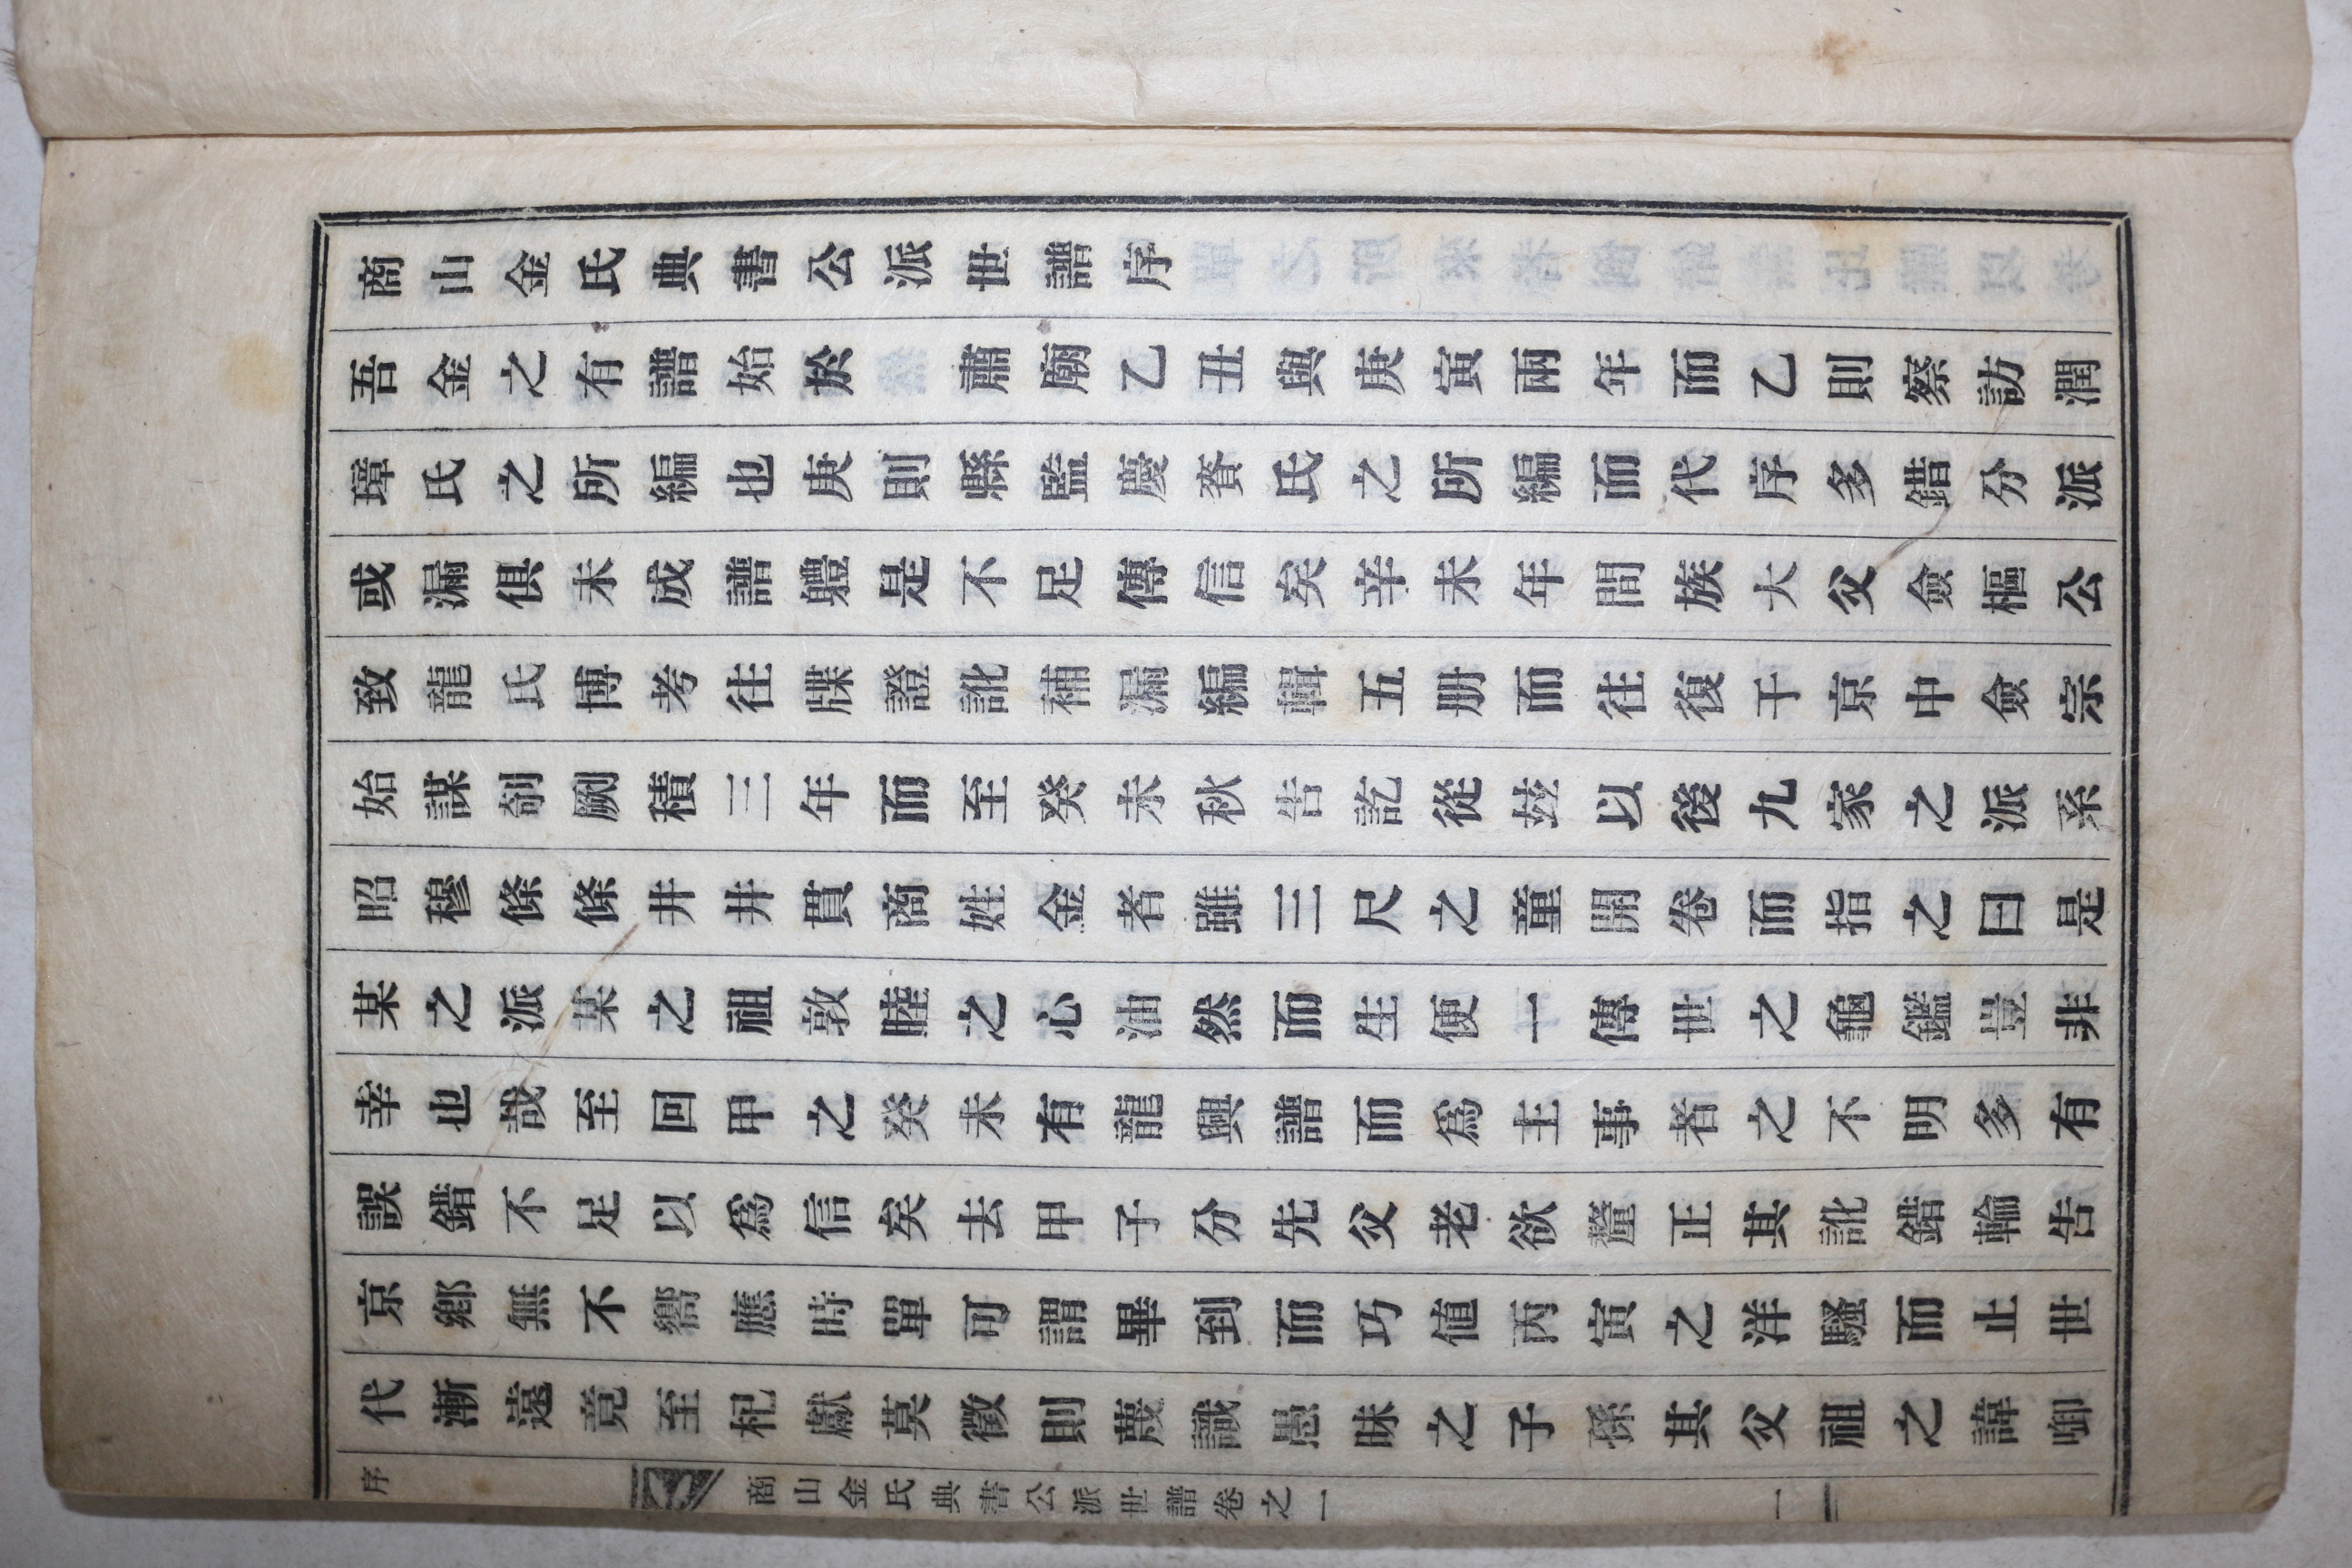 商山金氏典書公派世譜序
吾金之有譜始於 肅廟乙丑與庚寅兩年而乙則察訪潤
璋氏之所編也庚則縣監慶賚氏之所編而代序多錯分派
或漏俱未成譜軆是不足傳信矣辛未年間族大父僉樞公
致龍氏博考往牒證訛補漏編輯五册而往復于京中僉宗
始謀剞劂積三年而至癸未秋告訖從玆以後九家之派系
昭穆條條井井貫商姓金者雖三尺之童開卷而指之曰是
某之派某之祖敦睦之心油然而生便一傳世之龜鑑豈非
幸也哉至回甲之癸未有龍興譜而爲主事者之不明多有
誤錯不足以爲信矣去甲子分先父老欲釐正其訛錯輪告
京鄉無不嚮應時單可謂畢到而巧値丙寅之洋騷而止世
代漸遠竟至杞獻莫徵則蔑識愚昧之子孫其父祖之諱啣
序 商山金氏典書公派世譜卷之一 一